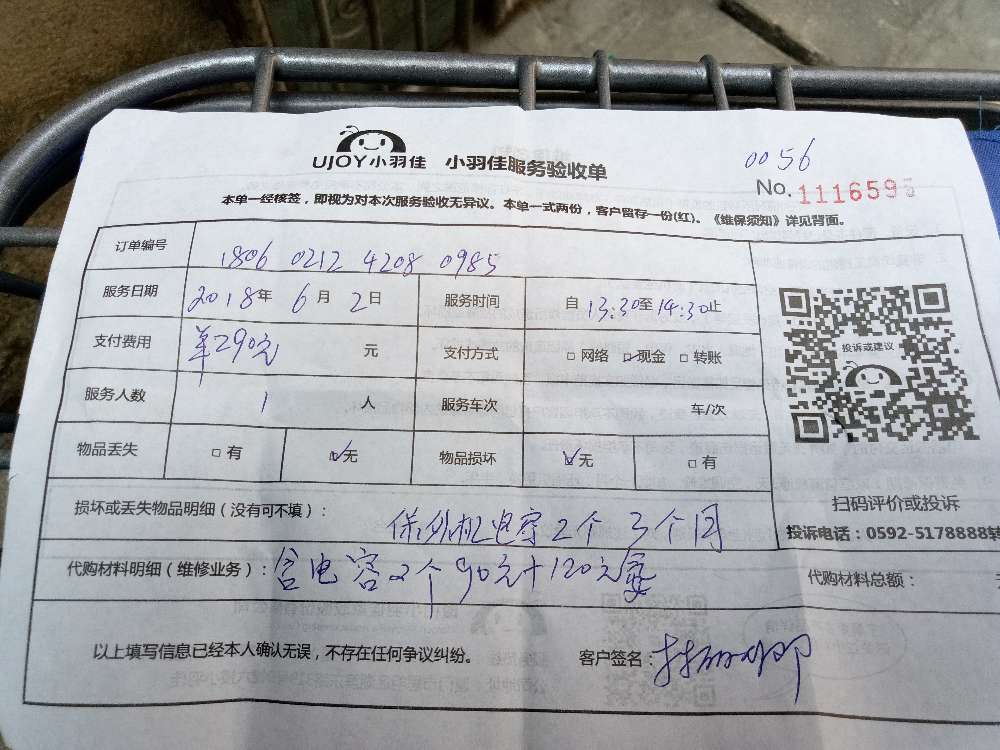 UJOY小羽佳 小羽佳服务验收单
0056
No. 1116595
本单一经核签，即视为对本次服务验收无异议。本单一式两份，客户留存一份(红)。《维保须知》详见背面。
订单编号 1806 0212 4208 0985
服务日期 2018年 6月 2日 服务时间 自 13:30至 14:30止
支付费用 单290元 元 支付方式 □ 网络 ☑ 现金 □ 转账
服务人数 1 人 服务车次 车/次
物品丢失 □ 有 ☑无 物品损坏 ☑ 无 □ 有
投诉或建议
扫码评价或投诉
投诉电话：0592-5178888转
损坏或丢失物品明细（没有可不填）： 保外机电容2个 3个月
代购材料明细（维修业务）：含电容2个90元+120元
代购材料总额：
以上填写信息已经本人确认无误，不存在任何争议纠纷。 客户签名：